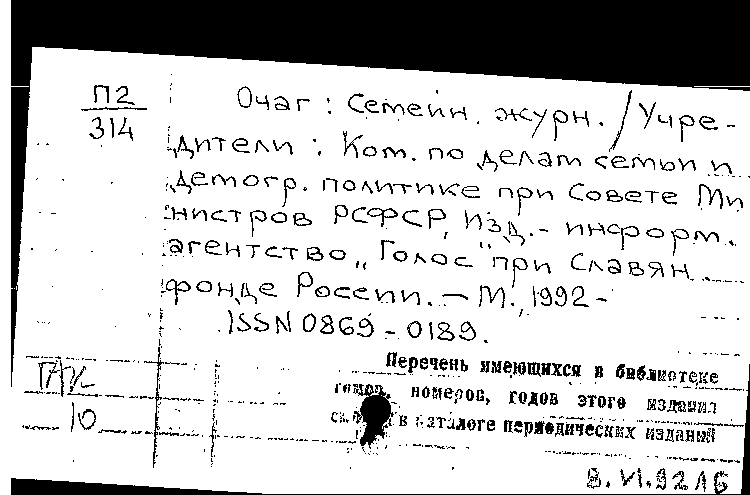 П2
314
Очаг : Семейн. журн. / Учре-
дители : Ком. по делам семьи и
демогр. политике при Совете Ми
нистров РСФСР, Изд.- информ.
агентство „Голос" при Славян.
фонде России. – М., 1992 -
ISSN 0869-0189.
Перечень имеющихся в библиотеке
томов, номеров, годов этого издания
в каталоге периодических изданий
10
8.VI.92